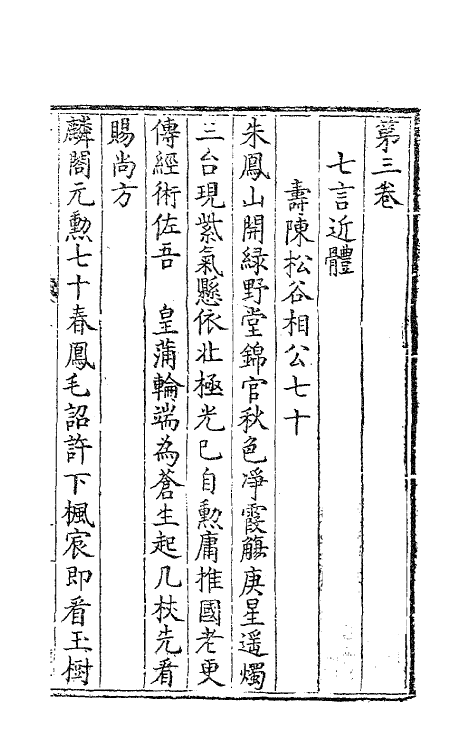 第三卷
七言近體
壽陳松谷相公七十
朱鳳山開緑野堂錦官秋色凈霞觴庚星遥燭
三台現紫氣懸依北極光已自勲庸推國老更
傳經術佐吾　皇蒲輪端為蒼生起几杖先看
賜尚方
麟閣元勲七十春鳳毛詔許下楓宸即看玉樹